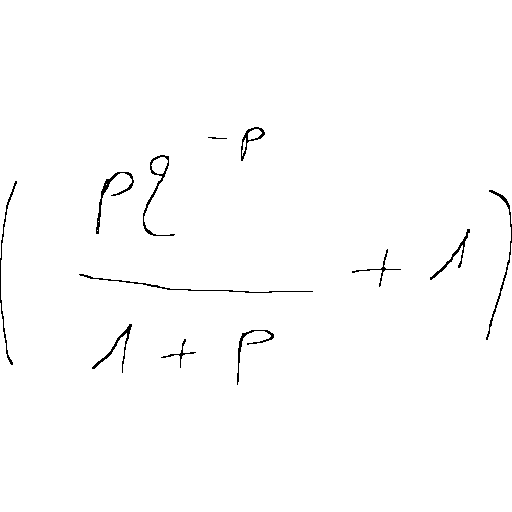 \left( \frac{p q^{-p}}{1+p} + 1 \right)